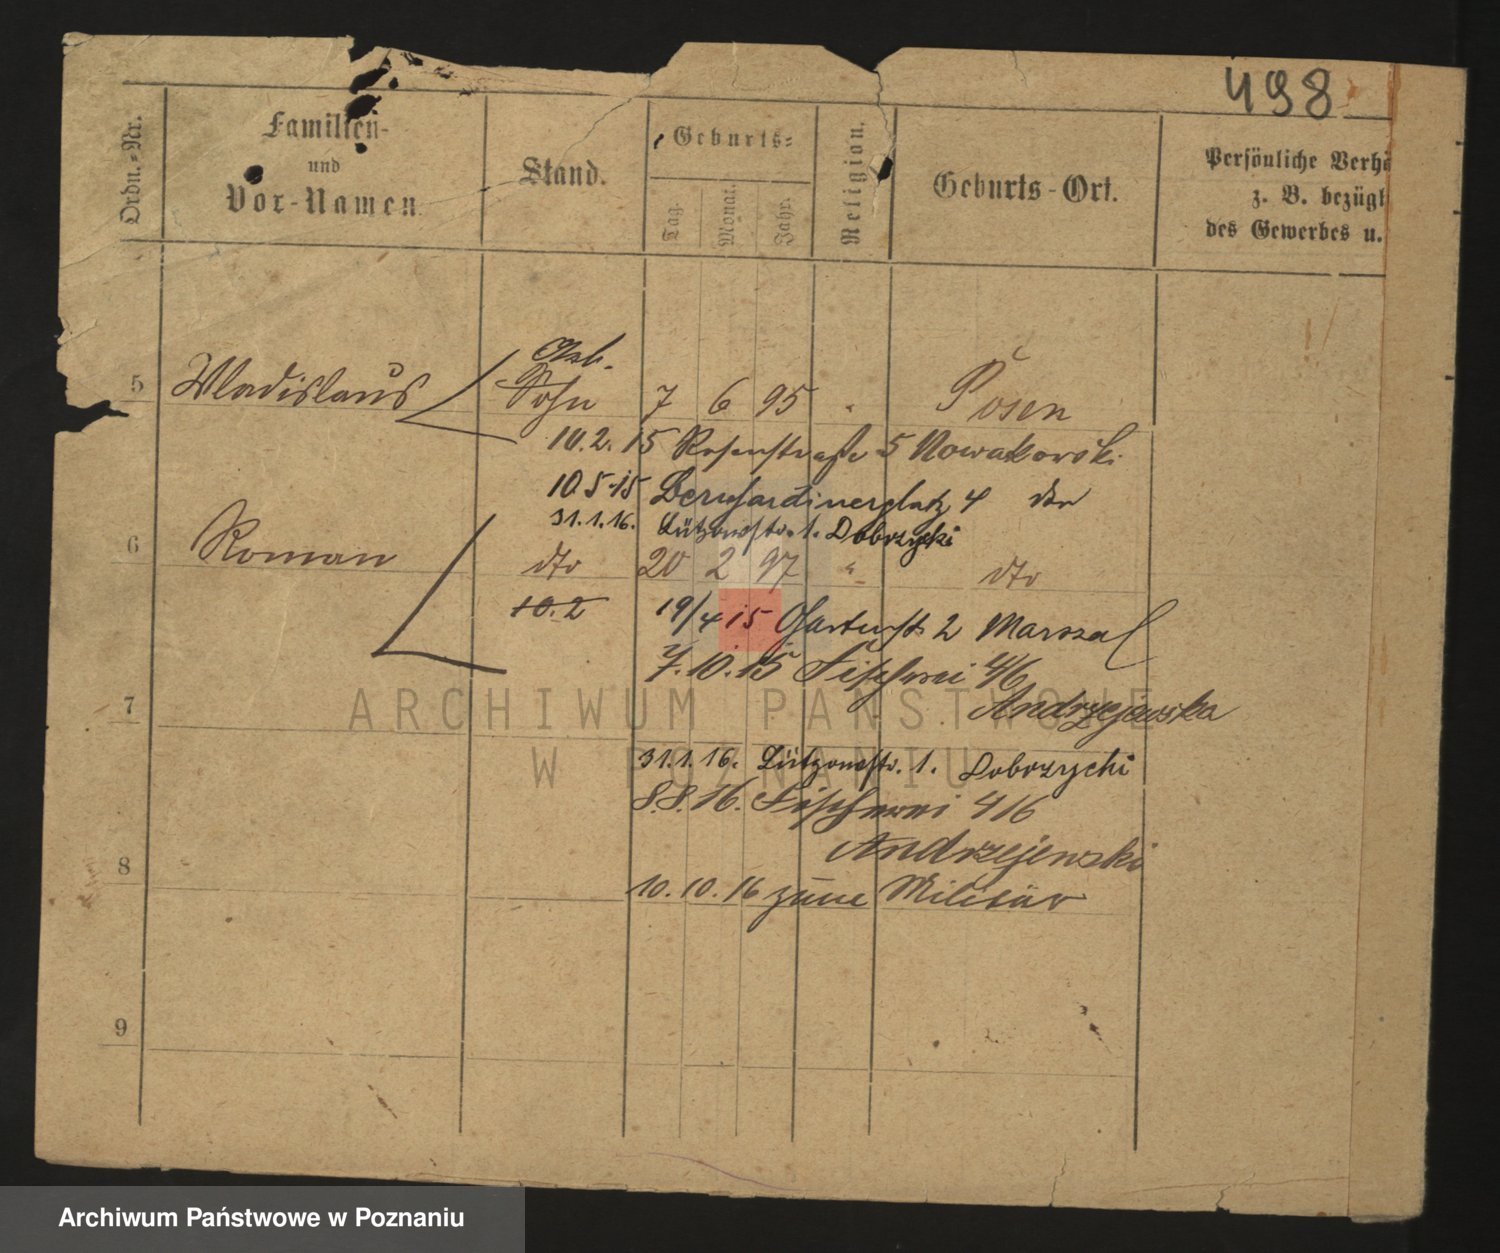 498
Ordn.-Nr.
Familien-
und
Vor-Namen.
Stand.
Geburts-
Tag.
Monat.
Jahr.
Religion.
Geburts-Ort.
Persönliche Verhä
z. B. bezügl
des Gewerbes u.
5 Wladislaus Sohn 7 6 95 " Posen
10.2.15 Rosenstraße 5 Nowakowski
10.5.15 Bernhardinerplatz 4 dto
31.1.16. Lützowstr. 1. Dobrzycki
6 Roman dto 20 2 97 " dto
10.2 19/4 15 Gartenstr. 2 Marszal
7.10.15 Fischerei 4/6
Andrzejewska
7
31.1.16. Lützowstr. 1. Dobrzycki
8.8.16. Fischerei 4/6
Andrzejewski
8
10.10.16 zum Militär
9
ARCHIWUM PAŃSTWOWE
W POZNANIU
Archiwum Państwowe w Poznaniu